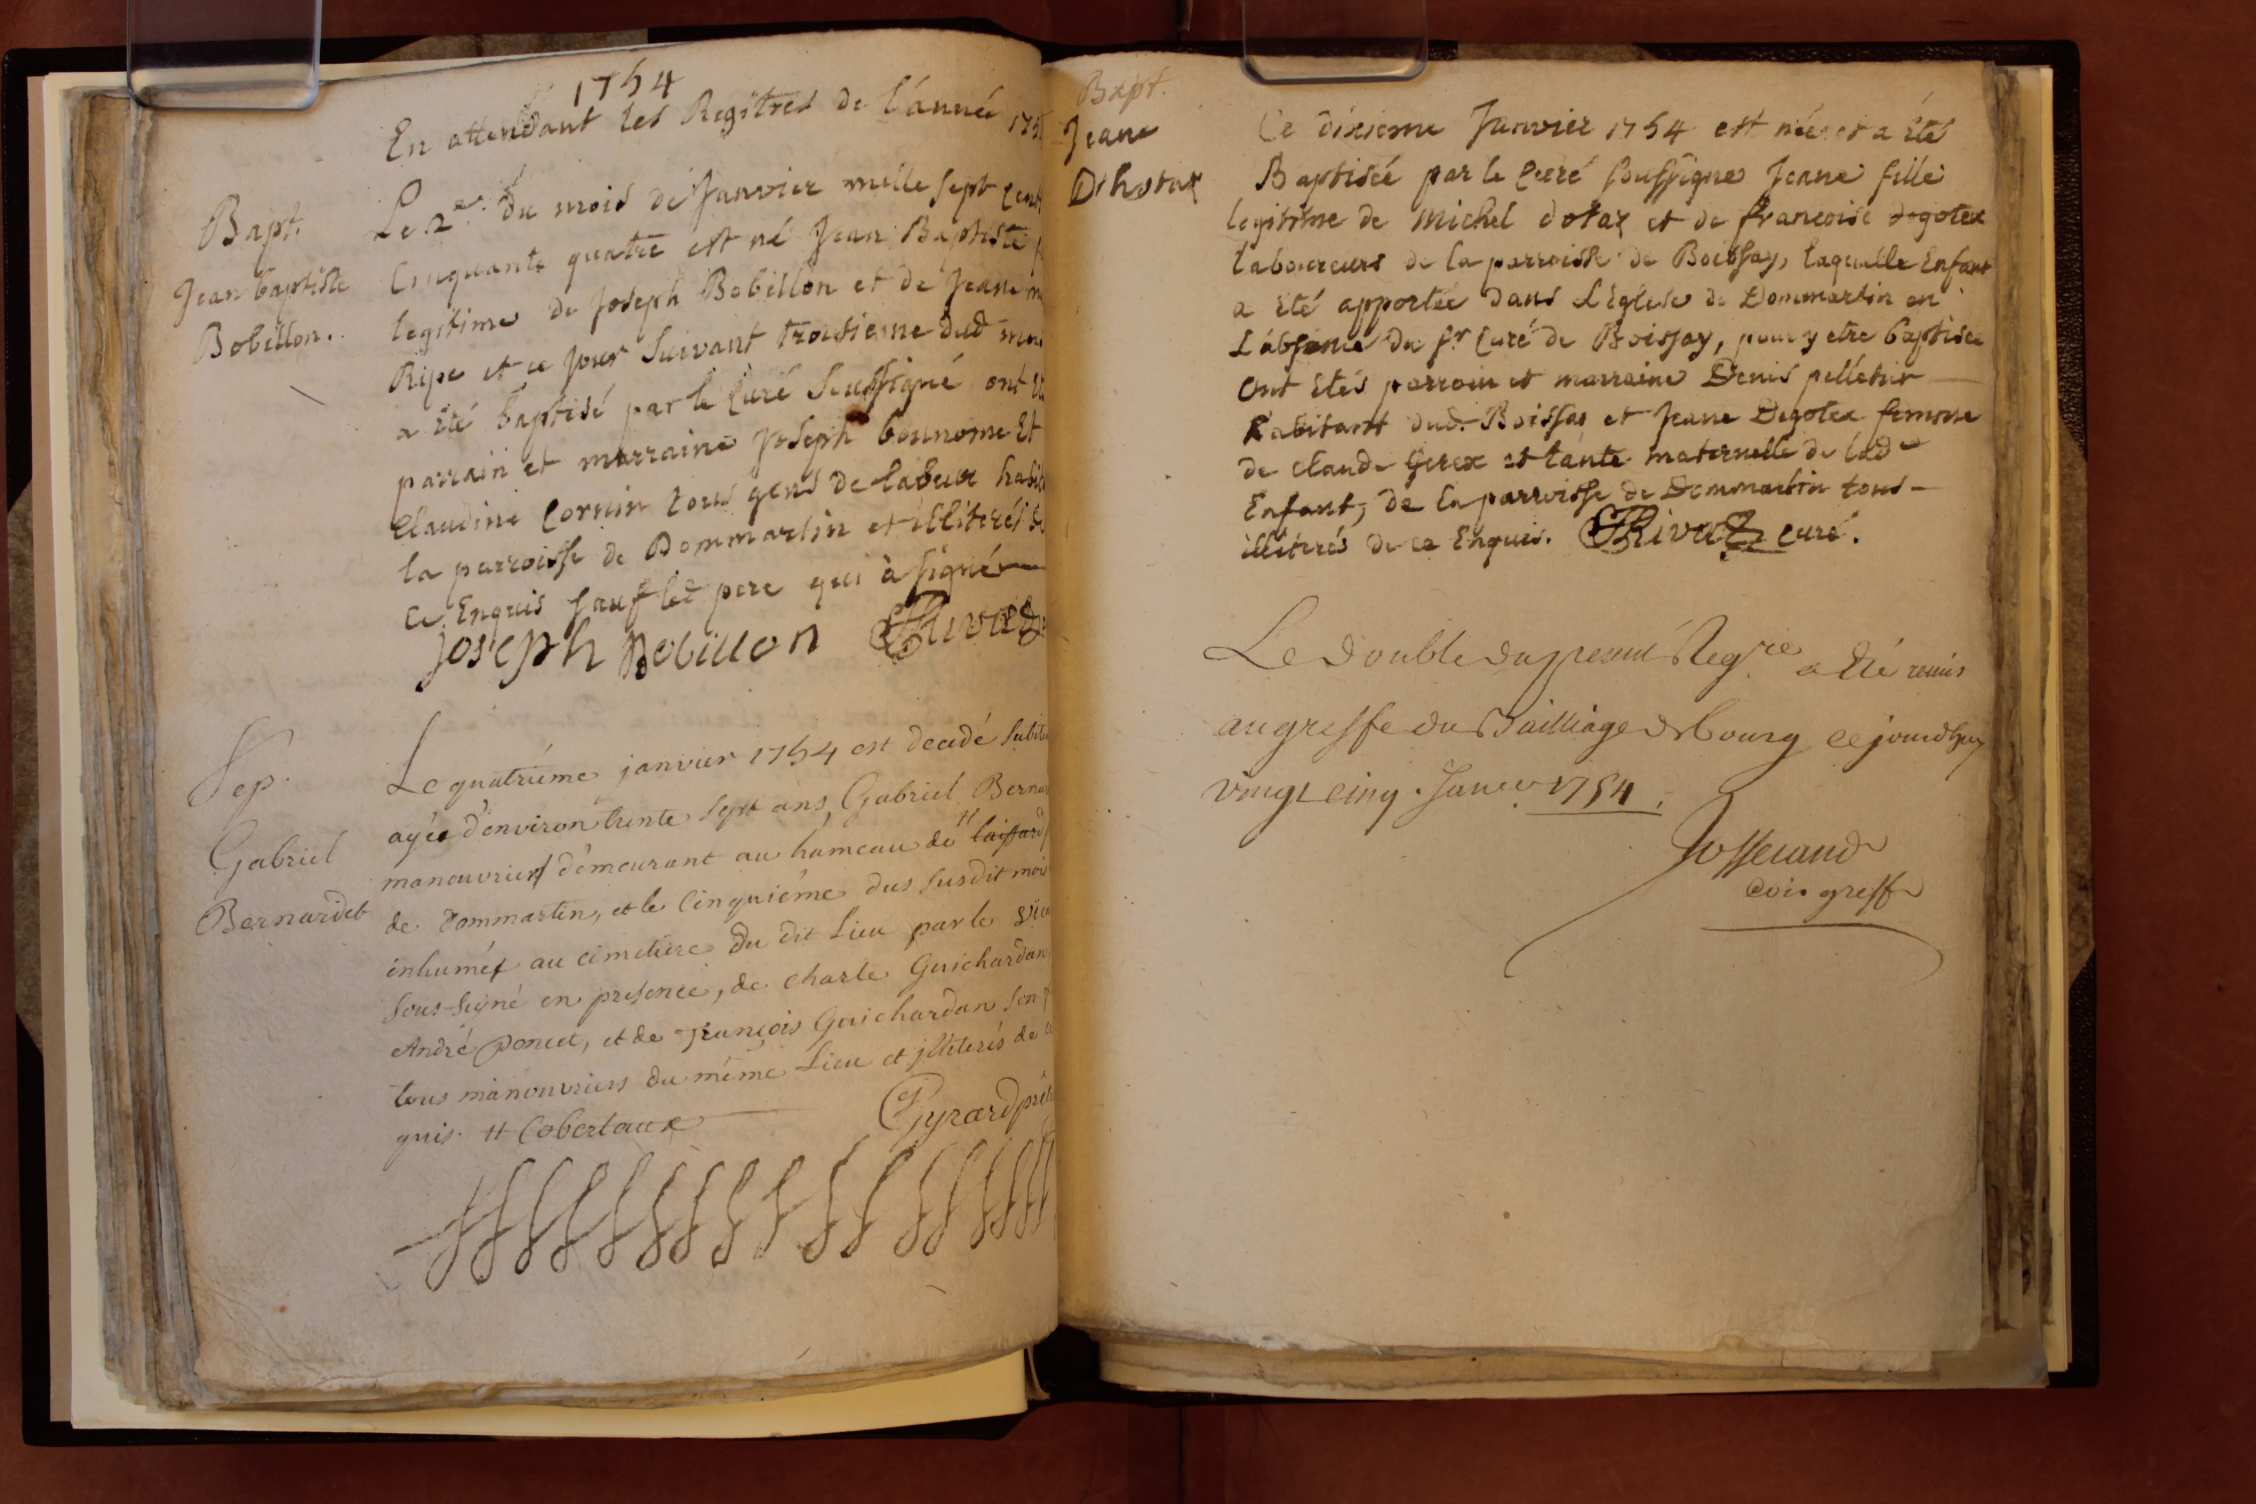 1754
En attendant les Regitres de l'année
Bapt.
Jean baptiste
Bobillon.
Le 2e. du mois de Janvier mille sept Cent
Cinquante quatre est né Jean Baptiste
legitime de Joseph Bobillon et de Jeane
Ripe et ce jour suivant troisieme dud
a été baptisé par le Curé soussigné ont
parrain et marraine Joseph bonnome Et
Claudine Cornin tous gens de labeur
la parroisse de Dommartin et illiterés
ce Enquis sauf led pere qui à signé
joseph Bobillon Rivod
Sep.
Gabriel
Bernardet
Le quatriéme janvier 1754 est decedé
agée d'environ trente sept ans, Gabriel
manouvrier demeurant au hameau de #
de Dommartin, et le Cinquiéme dus susdit mois
inhumé au cimetiere du dit Lieu par le
sous-signé en presence, de Charle Guichardan
André Poncet, et de François Guichardan son
tous manouvriers du méme Lieu et jlliterés de
quis. # Cobertaux
Gyrard
Bapt.
Jeane
Dhotax
Ce dixieme Janvier 1754 est née et a été
Baptisée par le Curé soussigne Jeane fille
legitime de Michel dotaz et de francoise degotex
laboureurs de la parroisse de Boissay, laquelle Enfant
a été apportée dans L'Eglise de Dommartin en
L'absence du sr Curé de Boissay, pour y etre baptisée
ont étés parrain et marraine Denis pelletier
habitant dud. Boissay et Jeane Degotex femme
de Claude Gerex et tante maternelle de lade
Enfant, de la parroisse de Dommartin tous
illiterés de ce Enquis. Rivod curé.
Le double du present Regre a été remis
au greffe du Bailliage de bourg ce jourdhuy
vingt cinq Janer 1754.
Josserand
greff